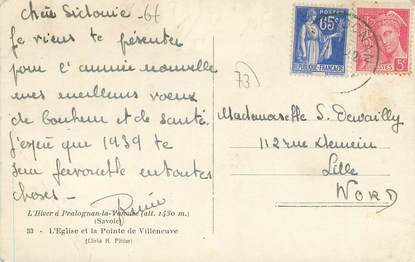 Chère Sidonie -
Je viens te présenter
pour l'année nouvelle
mes meilleurs voeux
de bonheur et de santé.
J'espère que 1939 te
sera favorable en toutes
choses -
73
Mademoiselle S. Dewailly
112 rue
Lille
NORD
L'Hiver à Pralognan-la-Vanoise (alt. 1430 m.)
(Savoie)
33 - L'Eglise et la Pointe de Villeneuve
(Cliché R. Pittier)
POSTES
65c
REPUBLIQUE FRANÇAISE
POSTES 5c